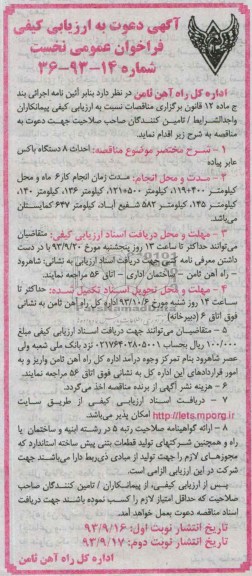 آگهی دعوت به ارزیابی کیفی
فراخوان عمومی نخست
شماره ۱۴-۹۳-۳۶
اداره کل راه آهن ثامن در نظر دارد بنابر آئین نامه اجرائی بند
ج ماده ۱۲ قانون برگزاری مناقصات نسبت به ارزیابی کیفی پیمانکاران
واجدالشرایط / تامین کنندگان صاحب صلاحیت جهت دعوت به
مناقصه به شرح زیر اقدام نماید.
۱ - شرح مختصر موضوع مناقصه: احداث ۸ دستگاه باکس
عابر پیاده
۲ - مدت و محل انجام: مدت زمان انجام کار ۶ ماه و محل
کیلومتر ۴۰۰+۱۱۹، کیلومتر ۵۰۰+۱۲۱، کیلومتر ۱۳۶، کیلومتر ۱۴۰،
کیلومتر ۱۴۵، کیلومتر ۵۸۲ شفیع آباد، کیلومتر ۶۴۷ کمایستان
می‌باشد.
۳ - مهلت و محل دریافت اسناد ارزیابی کیفی: متقاضیان
می‌توانند حداکثر تا ساعت ۱۳ روز پنجشنبه مورخ ۹۳/۹/۲۰ با در دست
داشتن معرفی نامه کتبی جهت دریافت اسناد ارزیابی به نشانی: شاهرود
- راه آهن ثامن - ساختمان اداری - اتاق ۵۶ مراجعه نمایند.
۴ - مهلت و محل تحویل اسناد تکمیل شده: حداکثر تا
ساعت ۱۴ روز شنبه مورخ ۹۳/۱۰/۶ اداره کل راه آهن ثامن به نشانی
فوق اتاق ۶ (دبیرخانه)
۵ - متقاضیان می‌توانند جهت دریافت اسناد ارزیابی کیفی مبلغ
۱۰۰/۰۰۰ ریال بحساب ۰۲۱۷۶۴۰۲۸۰۵۰۰۱ نزد بانک ملی شعبه ولی
عصر شاهرود بنام تمرکز وجوه درآمد اداره کل راه آهن ثامن واریز و به
امور قراردادهای این اداره کل به نشانی فوق اتاق ۵۶ مراجعه نمایند.
۶ - هزینه نشر آگهی از برنده مناقصه اخذ می‌گردد.
۷ - دریافت اسناد ارزیابی کیفی از طریق سایت
http://iets.mporg.ir امکان پذیر می‌باشد.
۸ - ارائه گواهینامه صلاحیت رتبه ۵ در رشته ابنیه و ساختمان یا
راه و همچنین شرکتهای تولید قطعات بتنی پیش ساخته استاندارد که
مجوزهای لازم را جهت تولید از مبادی ذی‌ربط دارا می‌باشند جهت
شرکت در این ارزیابی الزامی است.
پس از ارزیابی کیفی، از پیمانکاران / تامین کنندگان صاحب
صلاحیت که حداقل امتیاز لازم را کسب نموده باشند جهت دریافت
اسناد مناقصه دعوت بعمل خواهد آمد.
تاریخ انتشار نوبت اول: ۹۳/۹/۱۶
تاریخ انتشار نوبت دوم: ۹۳/۹/۱۷
اداره کل راه آهن ثامن